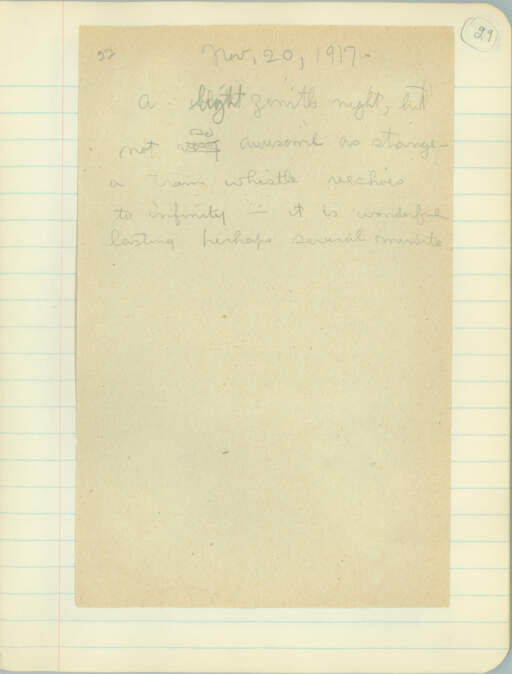 29
52
Nov, 20, 1917-
a slight zenith night, but
not so awesome as strange -
a train whistle reechoes
to infinity - it is wonderful
lasting perhaps several minute